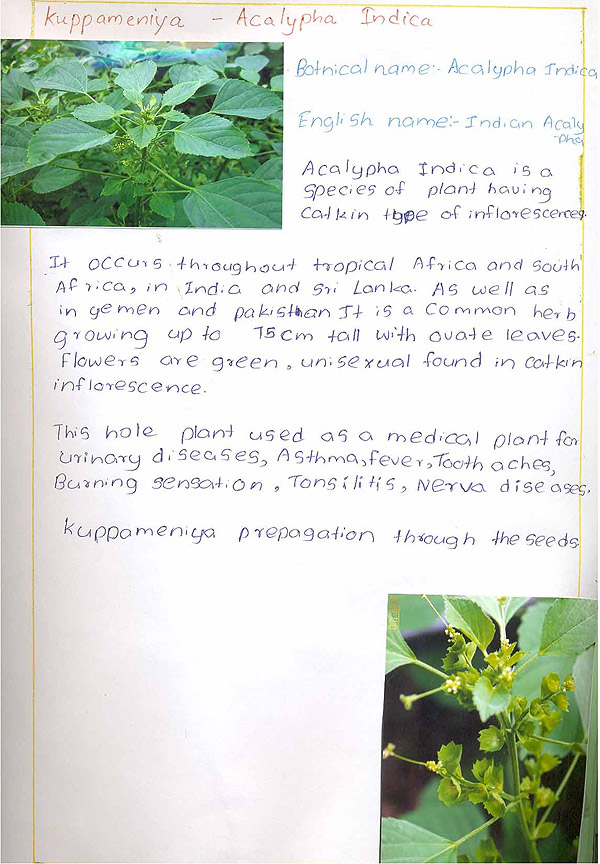 Kuppameniya - Acalypha Indica
Botnical name:- Acalypha Indica
English name:- Indian Acaly
-pha
Acalypha Indica is a
species of plant having
catkin type of inflorescences.
It occurs throughout tropical Africa and south
Africa, in India and Sri Lanka. As well as
in yemen and pakisthan It is a common herb
growing up to 75cm tall with ovate leaves.
Flowers are green, unisexual found in catkin
inflorescence.
This hole plant used as a medical plant for
urinary diseases, Asthma, fever, Tooth aches,
Burning sensation, Tonsilitis, Nerva diseases.
Kuppameniya prepagation through the seeds.